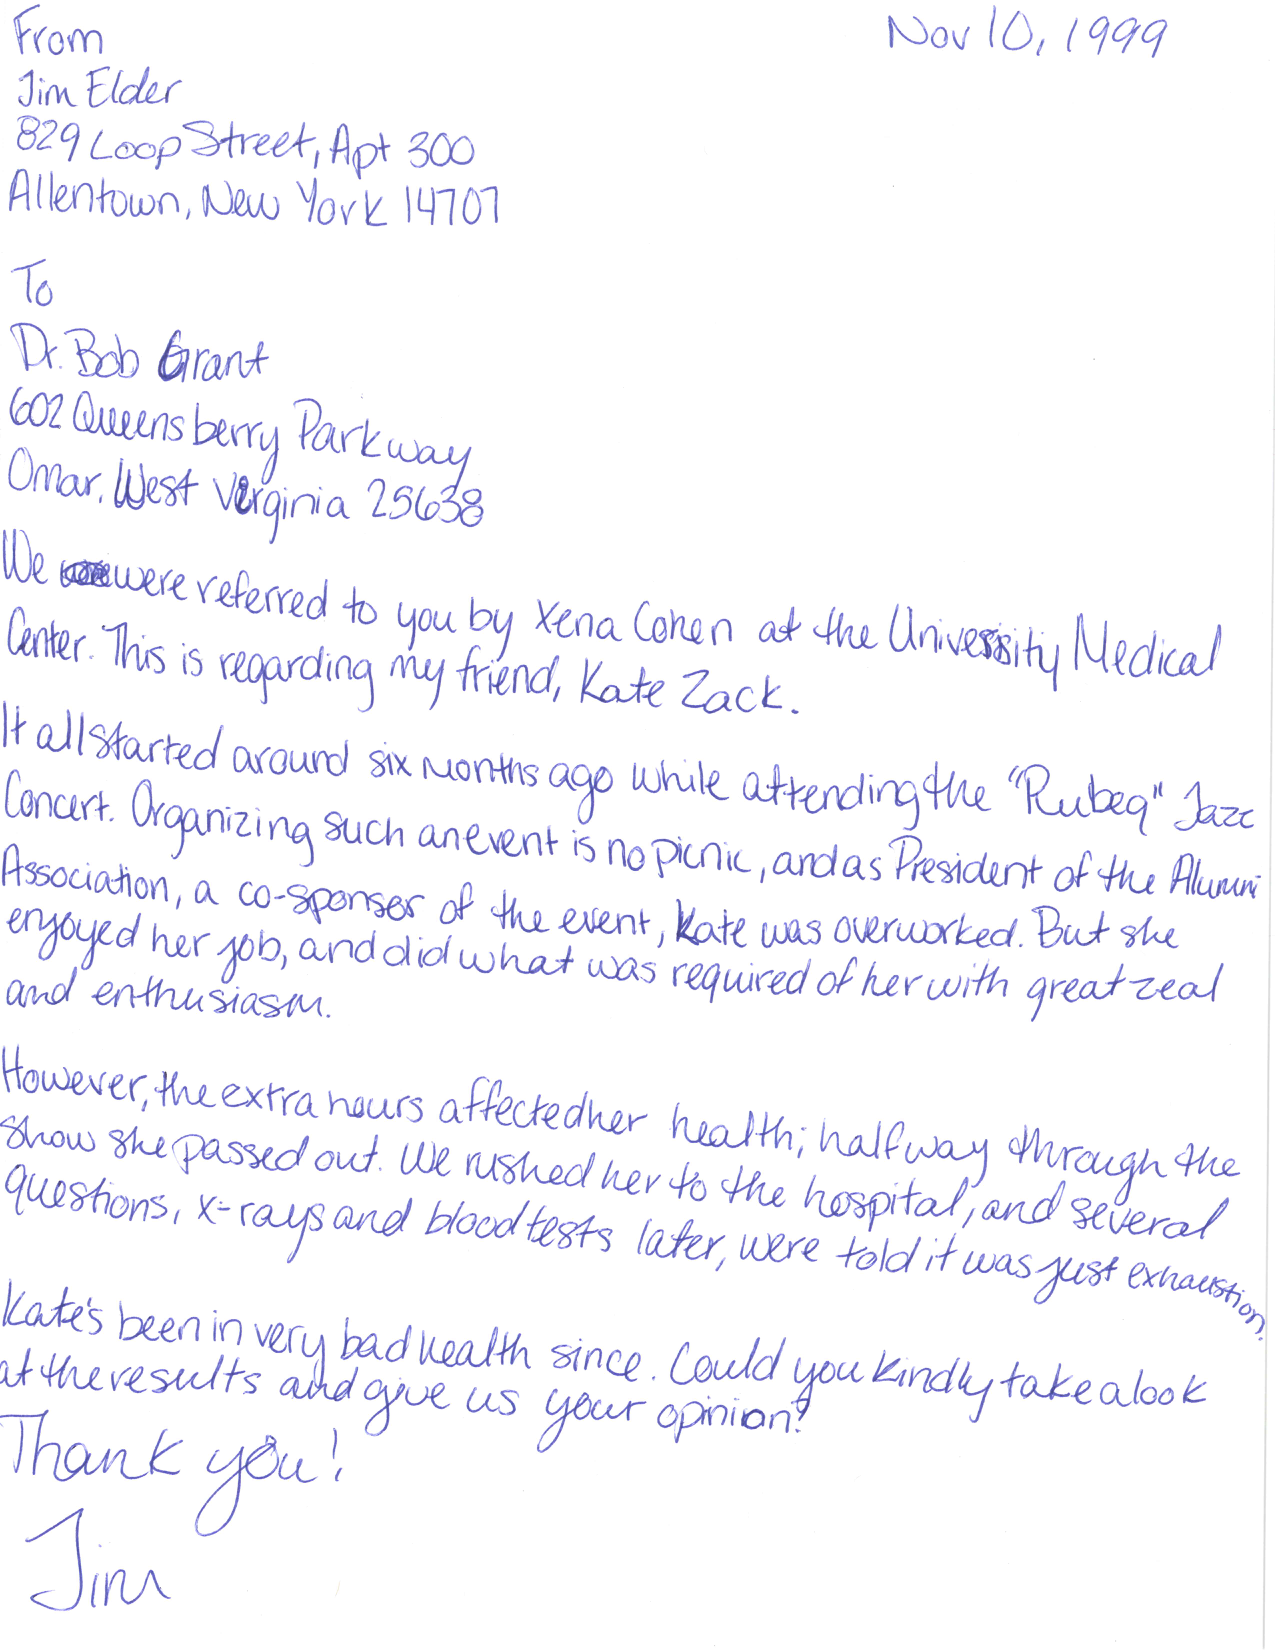 From
Nov 10, 1999
Jim Elder
829 Loop Street, Apt 300
Allentown, New York 14707
To
Dr. Bob Grant
602 Queensberry Parkway
Omar, West Virginia 25638
We were referred to you by Xena Cohen at the University Medical
Center. This is regarding my friend, Kate Zack.
It all started around six months ago while attending the "Rubeq" Jazz
Concert. Organizing such an event is no picnic, and as President of the Alumni
Association, a co-sponser of the event, Kate was overworked. But she
enjoyed her job, and did what was required of her with great zeal
and enthusiasm.
However, the extra hours affected her health; halfway through the
show she passed out. We rushed her to the hospital, and several
questions, x-rays and blood tests later, were told it was just exhaustion.
Kate's been in very bad health since. Could you kindly take a look
at the results and give us your opinion?
Thank you!
Jim